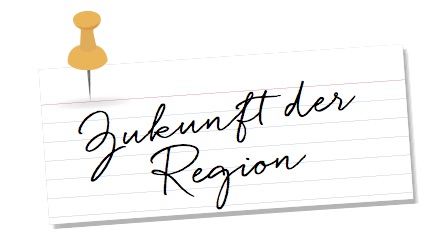 Zukunft der
Region